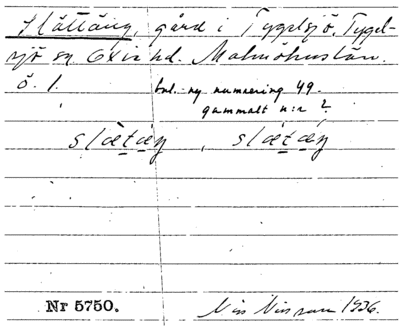 Slättäng, gård i Tygelsjö. Tygel-
sjö sn Oxie hd. Malmöhuslän.
ö. 1. enl. ny numrering 49.
gammalt n:r ?
slætæŋ , slætæŋ
Nr 5750. Nils Nilsson 1936.